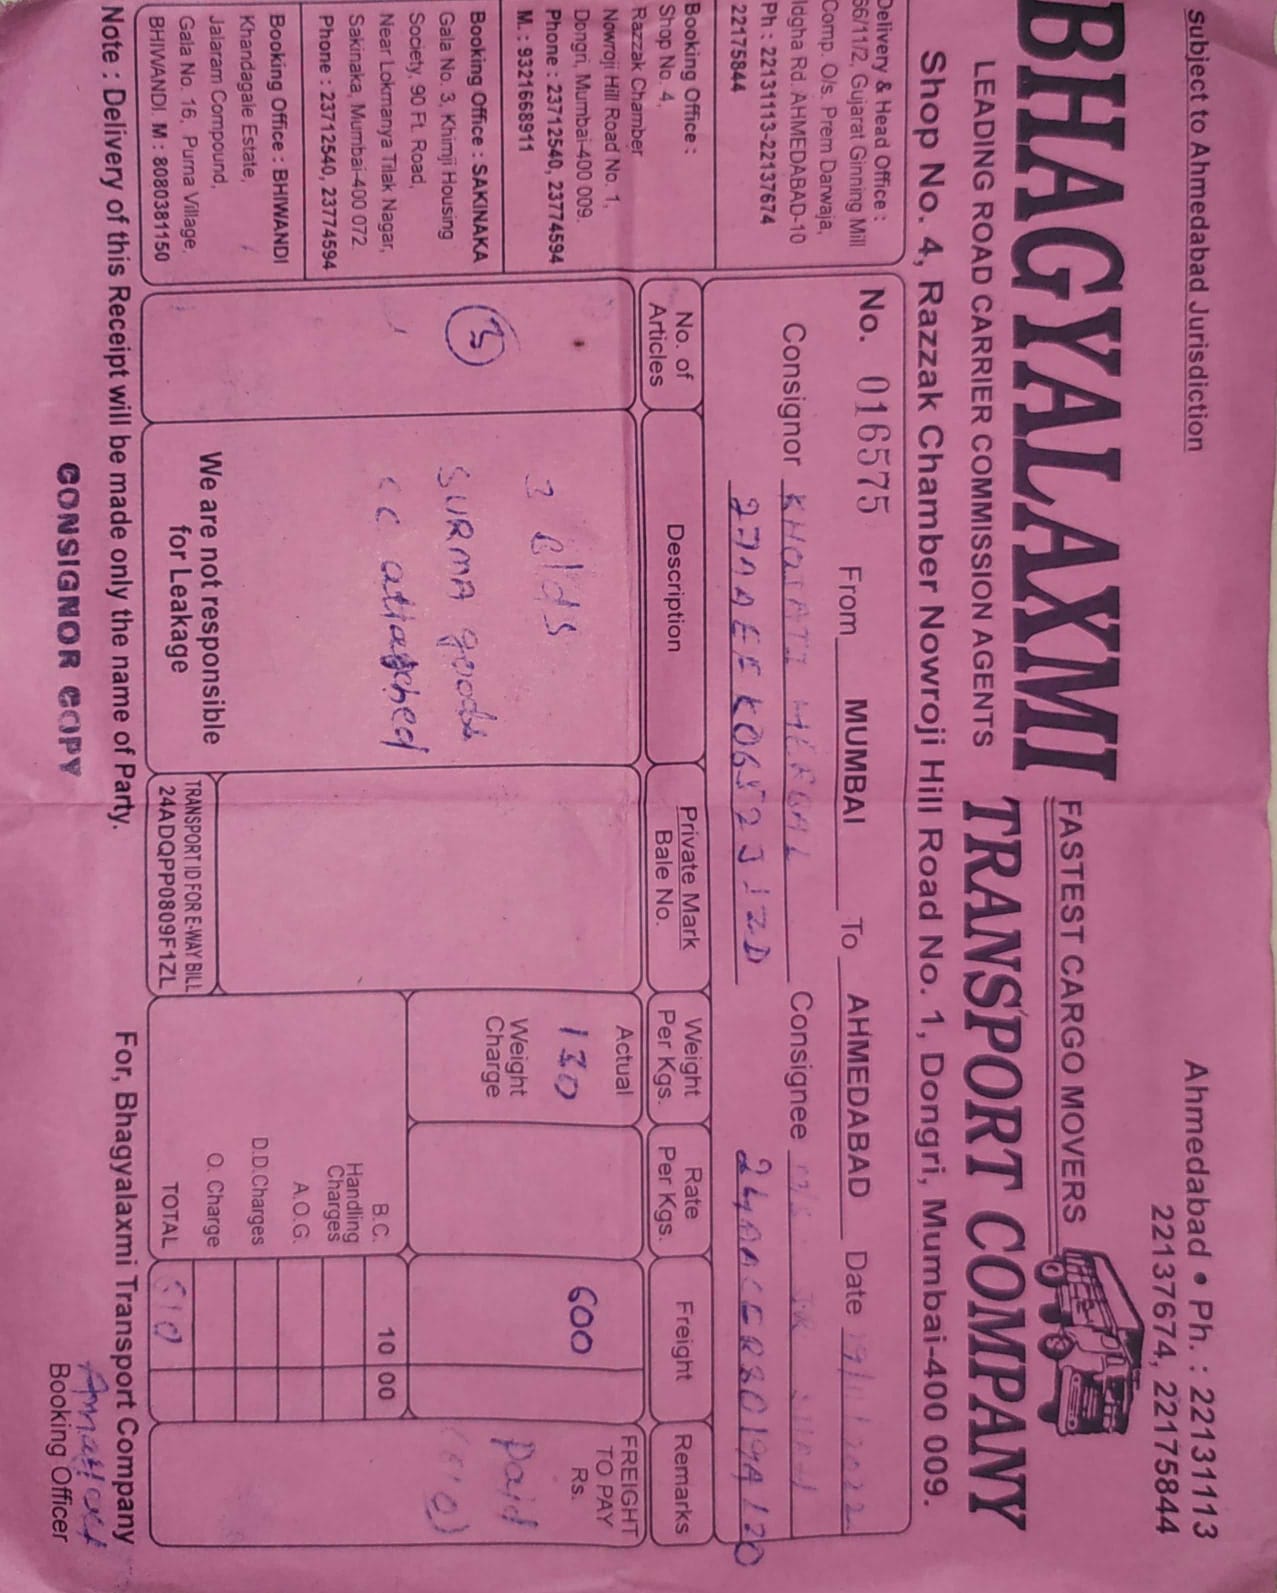 subject to Ahmedabad Jurisdiction
Ahmedabad • Ph. : 22131113
22137674, 22175844
BHAGYALAXMI
FASTEST CARGO MOVERS
TRANSPORT COMPANY
LEADING ROAD CARRIER COMMISSION AGENTS
Shop No. 4, Razzak Chamber Nowroji Hill Road No. 1, Dongri, Mumbai-400 009.
Delivery & Head Office :
66/11/2, Gujarat Ginning Mill
Comp. O/s. Prem Darwaja,
Idgha Rd. AHMEDABAD-10
Ph : 22131113-22137674
22175844
Booking Office :
Shop No. 4,
Razzak Chamber
Nowroji Hill Road No. 1,
Dongri, Mumbai-400 009.
Phone : 23712540, 23774594
M. : 9321668911
Booking Office : SAKINAKA
Gala No. 3, Khimji Housing
Society, 90 Ft. Road,
Near Lokmanya Tilak Nagar,
Sakinaka, Mumbai-400 072.
Phone : 23712540, 23774594
Booking Office : BHIWANDI
Khandagale Estate,
Jalaram Compound,
Gala No. 16, Purna Village,
BHIWANDI. M : 8080381150
No. 016575 From MUMBAI To AHMEDABAD Date 19/11/2022
Consignor KHOJATI Consignee M/S.
No. of Articles Description Private Mark Bale No. Weight Per Kgs. Rate Per Kgs. Freight Remarks
3
3 Blds
SURMA goods
CC attached
We are not responsible
for Leakage
TRANSPORT ID FOR E-WAY BILL
24ADQPP0809F1ZL
Actual
130
Weight
Charge
600
B.C. 10 00
Handling
Charges
A.O.G.
D.D.Charges
O. Charge
TOTAL 610
FREIGHT
TO PAY
Rs.
Paid
(610)
Note : Delivery of this Receipt will be made only the name of Party.
For, Bhagyalaxmi Transport Company
CONSIGNOR COPY
Booking Officer